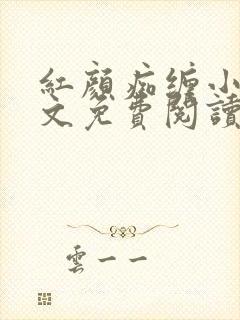 紅顏痴纏小
文免費閱讀
雲一一